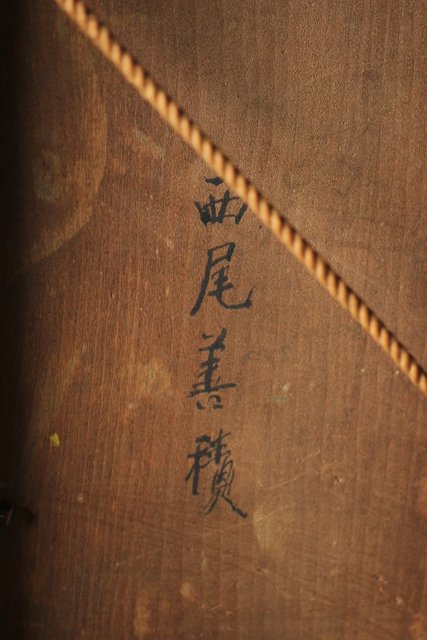 西尾善積